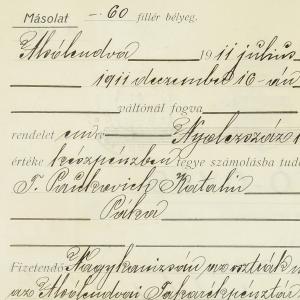 Másolat –.60 fillér bélyeg.
Alsólendva 1911 július
1911 deczember 10-án
váltónál fogva
rendelet Nyolczszáz
értéke készpénzben tegye számolásba tud
T. Paukovich Katalin
Páka
Fizetendő Nagykanizsán az osztrák
az Alsólendvai Takarékpénztár